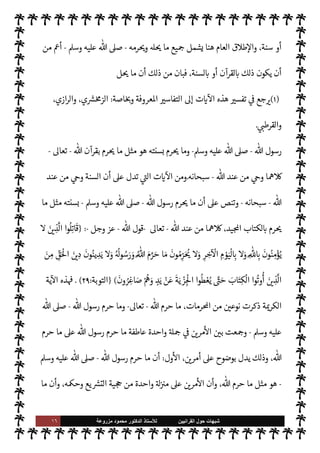 أو سنة، والإطلاق العام هنا يشمل جميع ما يحله ويحرمه - صلى الله عليه وسلم - أعم من
أن يكون ذلك بالقرآن أو بالسنة، فبان من ذلك أن ما يحل
(١)يرجع في تفسير هذه الآيات إلى التفاسير المعروفة وبخاصة: الزمخشري، والرازي،
والقرطبي
رسول الله - صلى الله عليه وسلم-وما يحرم بسنته هو مثل ما يحرم بقرآن الله - تعالى -
كلاهما وحي من عند الله - سبحانه.ومن الآيات التي تدل على أن السنة وحي من عند
الله - سبحانه - وتنص على أن ما يحرم رسول الله - صلى الله عليه وسلم - بسنته مثل ما
يحرم بالكتاب المجيد،كلاهما من عند الله - تعالى -قول الله - عز وجل -: (قَاتِلُوا الَّذِينَ لا
يُؤْمِنُونَ بِاللَّهِ وَلا بِالْيَوْمِ الْآخِرِ وَلا يُحَرِّمُونَ مَا حَرَّمَ اللَّهُ وَرَسُولُهُ وَلا يَدِينُونَ دِينَ الْحَقِّ مِنَ
الَّذِينَ أُوتُوا الْكِتَابَ حَتَّى يُعْطُوا الْجِزْيَةَ عَنْ يَدٍ وَهُمْ صَاغِرُونَ) (التوبة:٢٩) . فهذه الآية
الكريمة ذكرت نوعين من المحرمات، ما حرم الله - تعالى-وما حرم رسول الله - صلى الله
عليه وسلم - وجمعت بين الأمرين في جملة واحدة عاطفة ما حرم رسول الله على ما حرم
الله، وذلك يدل بوضوح على أمرين، الأول: أن ما حرم رسول الله - صلى الله عليه وسلم
- هو مثل ما حرم الله، وأن الأمرين على منزلة واحدة من حجية التشريع وحكمه، وأن ما
شبهات حول القرآنيين للأستاذ الدكتور محمود مزروعة ١٦